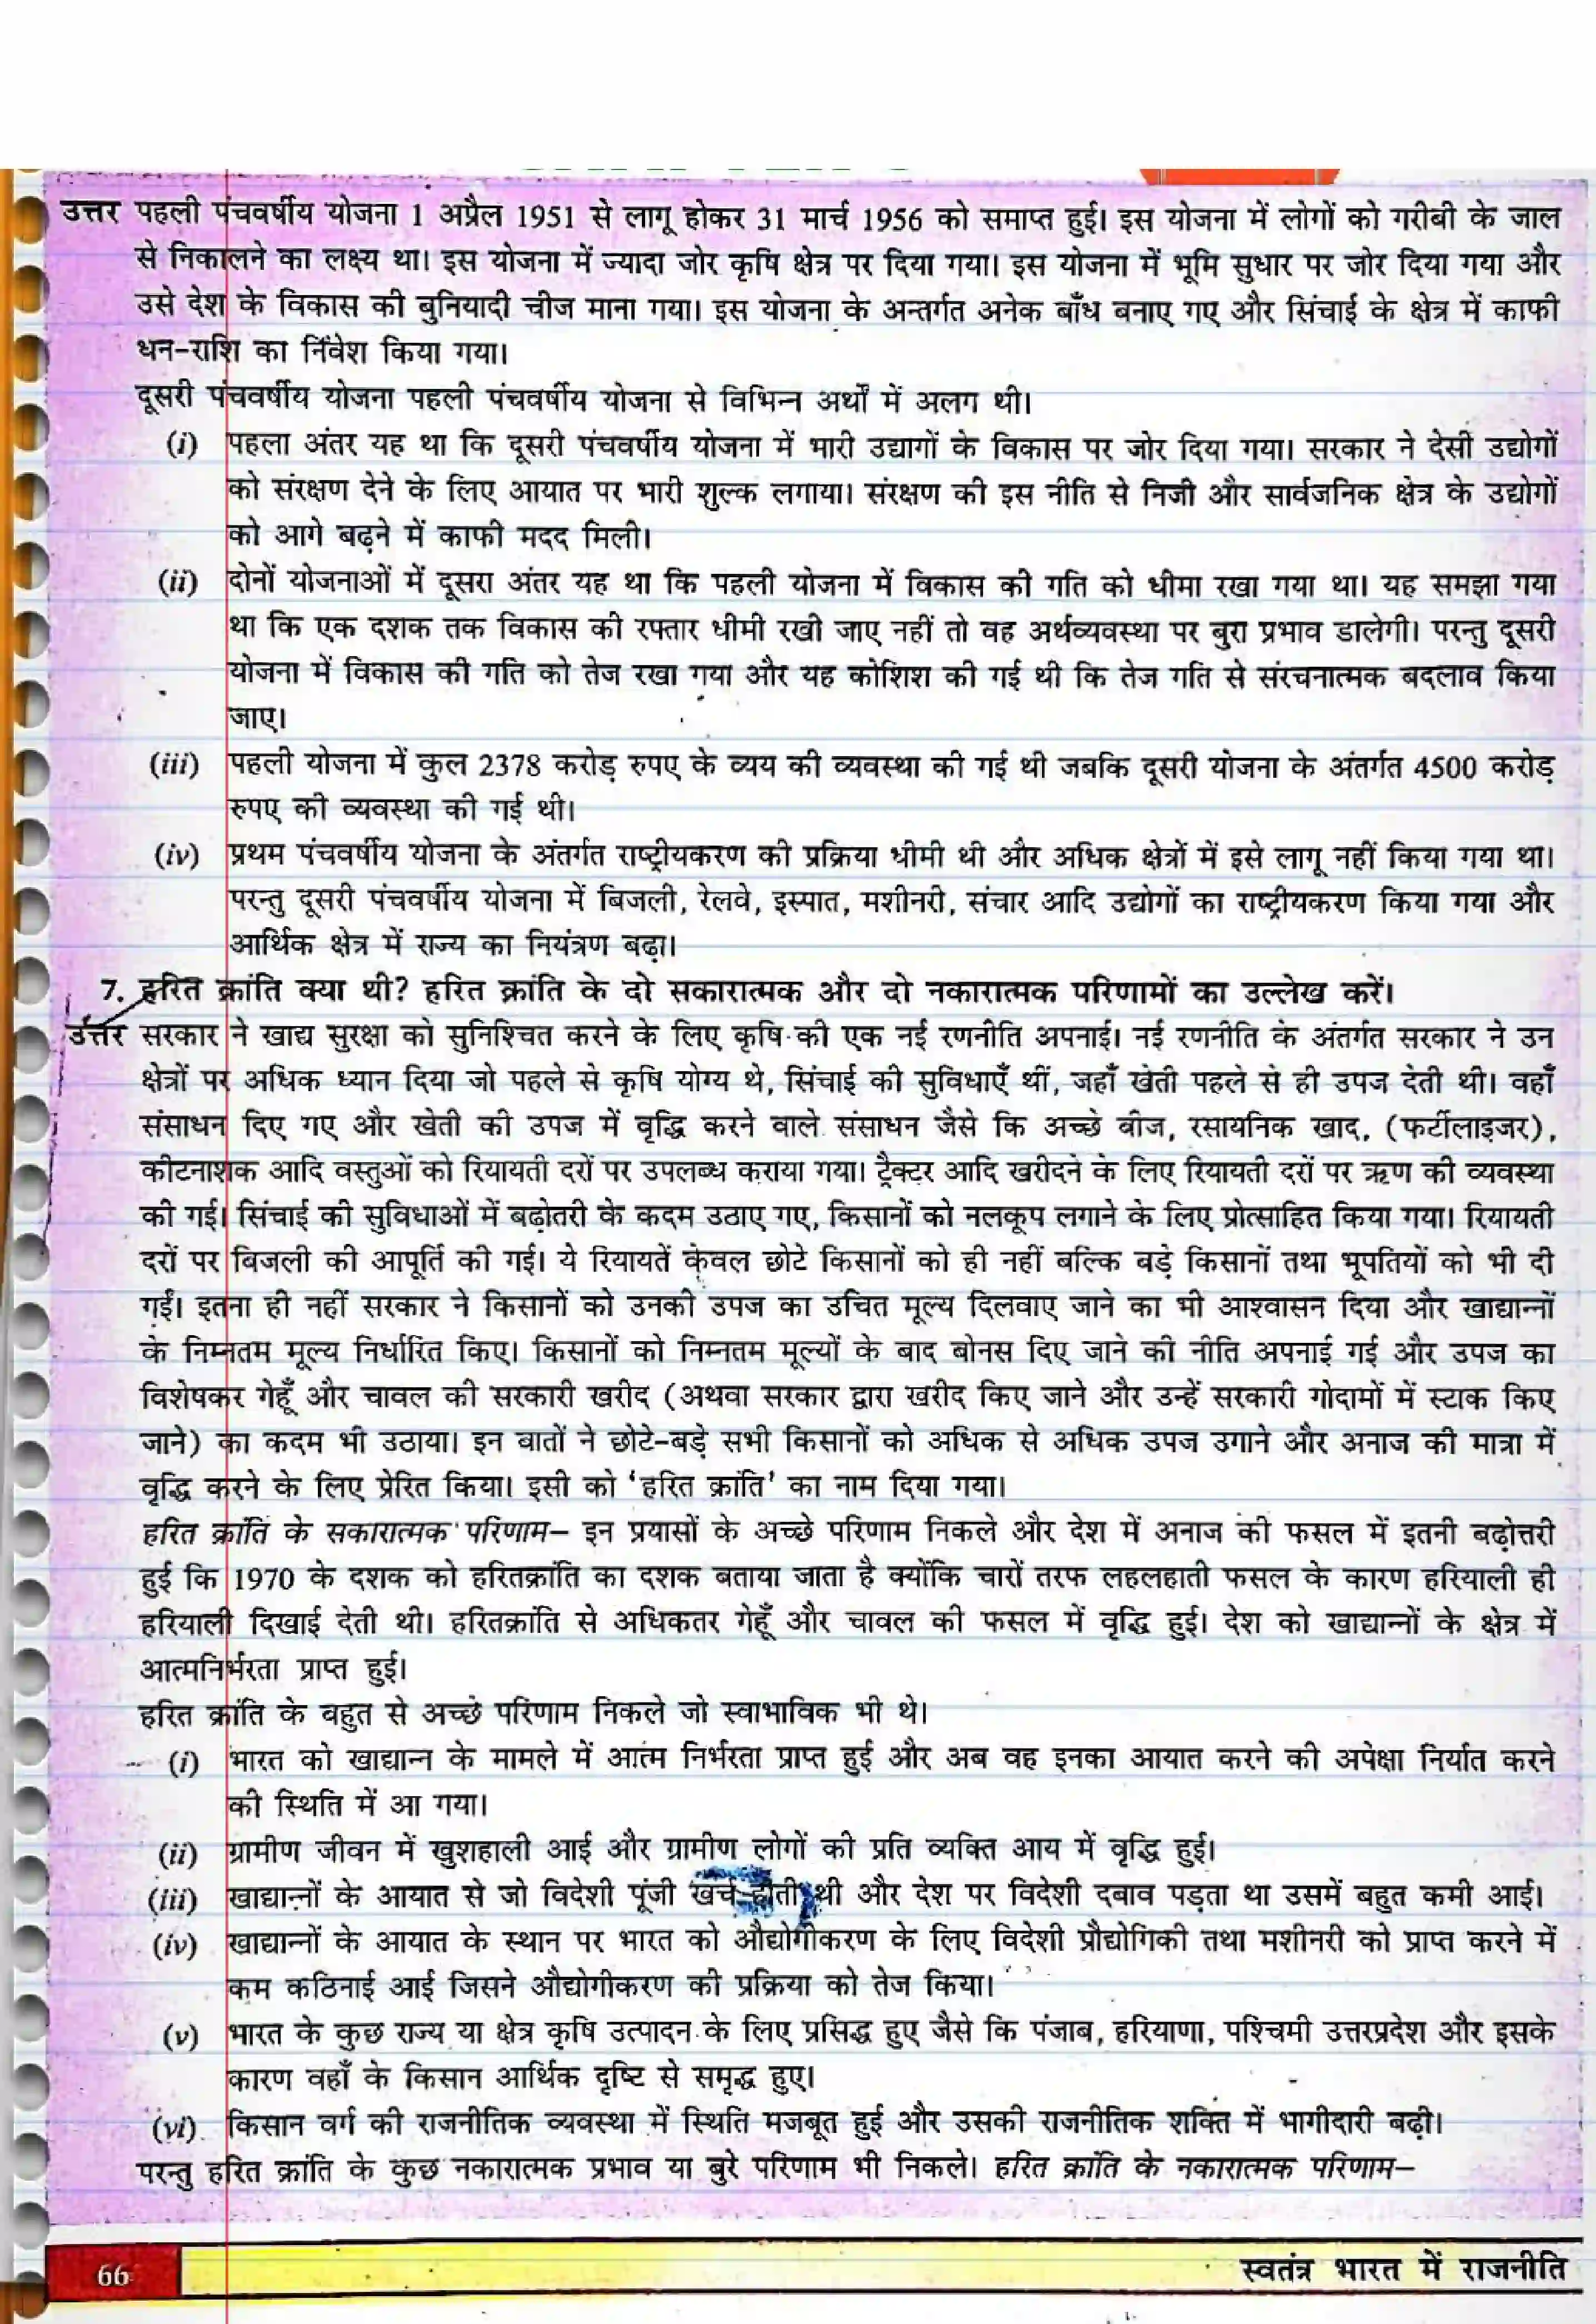 उत्तर पहली पंचवर्षीय योजना 1 अप्रैल 1951 से लागू होकर 31 मार्च 1956 को समाप्त हुई। इस योजना में लोगों को गरीबी के जाल
से निकालने का लक्ष्य था। इस योजना में ज्यादा जोर कृषि क्षेत्र पर दिया गया। इस योजना में भूमि सुधार पर जोर दिया गया और
उसे देश के विकास की बुनियादी चीज माना गया। इस योजना के अन्तर्गत अनेक बाँध बनाए गए और सिंचाई के क्षेत्र में काफी
धन-राशि का निवेश किया गया।
दूसरी पंचवर्षीय योजना पहली पंचवर्षीय योजना से विभिन्न अर्थों में अलग थी।
(i) पहला अंतर यह था कि दूसरी पंचवर्षीय योजना में भारी उद्यागों के विकास पर जोर दिया गया। सरकार ने देसी उद्योगों
को संरक्षण देने के लिए आयात पर भारी शुल्क लगाया। संरक्षण की इस नीति से निजी और सार्वजनिक क्षेत्र के उद्योगों
को आगे बढ़ने में काफी मदद मिली।
(ii) दोनों योजनाओं में दूसरा अंतर यह था कि पहली योजना में विकास की गति को धीमा रखा गया था। यह समझा गया
था कि एक दशक तक विकास की रफ्तार धीमी रखी जाए नहीं तो वह अर्थव्यवस्था पर बुरा प्रभाव डालेगी। परन्तु दूसरी
योजना में विकास की गति को तेज रखा गया और यह कोशिश की गई थी कि तेज गति से संरचनात्मक बदलाव किया
जाए।
(iii) पहली योजना में कुल 2378 करोड़ रुपए के व्यय की व्यवस्था की गई थी जबकि दूसरी योजना के अंतर्गत 4500 करोड़
रुपए की व्यवस्था की गई थी।
(iv) प्रथम पंचवर्षीय योजना के अंतर्गत राष्ट्रीयकरण की प्रक्रिया धीमी थी और अधिक क्षेत्रों में इसे लागू नहीं किया गया था।
परन्तु दूसरी पंचवर्षीय योजना में बिजली, रेलवे, इस्पात, मशीनरी, संचार आदि उद्योगों का राष्ट्रीयकरण किया गया और
आर्थिक क्षेत्र में राज्य का नियंत्रण बढ़ा।
7. हरित क्रांति क्या थी? हरित क्रांति के दो सकारात्मक और दो नकारात्मक परिणामों का उल्लेख करें।
उत्तर सरकार ने खाद्य सुरक्षा को सुनिश्चित करने के लिए कृषि की एक नई रणनीति अपनाई। नई रणनीति के अंतर्गत सरकार ने उन
क्षेत्रों पर अधिक ध्यान दिया जो पहले से कृषि योग्य थे, सिंचाई की सुविधाएँ थीं, जहाँ खेती पहले से ही उपज देती थी। वहाँ
संसाधन दिए गए और खेती की उपज में वृद्धि करने वाले संसाधन जैसे कि अच्छे बीज, रसायनिक खाद, (फर्टीलाइजर),
कीटनाशक आदि वस्तुओं को रियायती दरों पर उपलब्ध कराया गया। ट्रैक्टर आदि खरीदने के लिए रियायती दरों पर ऋण की व्यवस्था
की गई। सिंचाई की सुविधाओं में बढ़ोतरी के कदम उठाए गए, किसानों को नलकूप लगाने के लिए प्रोत्साहित किया गया। रियायती
दरों पर बिजली की आपूर्ति की गई। ये रियायतें केवल छोटे किसानों को ही नहीं बल्कि बड़े किसानों तथा भूपतियों को भी दी
गईं। इतना ही नहीं सरकार ने किसानों को उनकी उपज का उचित मूल्य दिलवाए जाने का भी आश्वासन दिया और खाद्यान्नों
के निम्नतम मूल्य निर्धारित किए। किसानों को निम्नतम मूल्यों के बाद बोनस दिए जाने की नीति अपनाई गई और उपज का
विशेषकर गेहूँ और चावल की सरकारी खरीद (अथवा सरकार द्वारा खरीद किए जाने और उन्हें सरकारी गोदामों में स्टाक किए
जाने) का कदम भी उठाया। इन बातों ने छोटे-बड़े सभी किसानों को अधिक से अधिक उपज उगाने और अनाज की मात्रा में
वृद्धि करने के लिए प्रेरित किया। इसी को 'हरित क्रांति' का नाम दिया गया।
हरित क्रांति के सकारात्मक परिणाम– इन प्रयासों के अच्छे परिणाम निकले और देश में अनाज की फसल में इतनी बढ़ोत्तरी
हुई कि 1970 के दशक को हरितक्रांति का दशक बताया जाता है क्योंकि चारों तरफ लहलहाती फसल के कारण हरियाली ही
हरियाली दिखाई देती थी। हरितक्रांति से अधिकतर गेहूँ और चावल की फसल में वृद्धि हुई। देश को खाद्यान्नों के क्षेत्र में
आत्मनिर्भरता प्राप्त हुई।
हरित क्रांति के बहुत से अच्छे परिणाम निकले जो स्वाभाविक भी थे।
(i) भारत को खाद्यान्न के मामले में आत्म निर्भरता प्राप्त हुई और अब वह इनका आयात करने की अपेक्षा निर्यात करने
की स्थिति में आ गया।
(ii) ग्रामीण जीवन में खुशहाली आई और ग्रामीण लोगों की प्रति व्यक्ति आय में वृद्धि हुई।
(iii) खाद्यान्नों के आयात से जो विदेशी पूंजी खर्च होती थी और देश पर विदेशी दबाव पड़ता था उसमें बहुत कमी आई।
(iv) खाद्यान्नों के आयात के स्थान पर भारत को औद्योगीकरण के लिए विदेशी प्रौद्योगिकी तथा मशीनरी को प्राप्त करने में
कम कठिनाई आई जिसने औद्योगीकरण की प्रक्रिया को तेज किया।
(v) भारत के कुछ राज्य या क्षेत्र कृषि उत्पादन के लिए प्रसिद्ध हुए जैसे कि पंजाब, हरियाणा, पश्चिमी उत्तरप्रदेश और इसके
कारण वहाँ के किसान आर्थिक दृष्टि से समृद्ध हुए।
(vi) किसान वर्ग की राजनीतिक व्यवस्था में स्थिति मजबूत हुई और उसकी राजनीतिक शक्ति में भागीदारी बढ़ी।
परन्तु हरित क्रांति के कुछ नकारात्मक प्रभाव या बुरे परिणाम भी निकले। हरित क्रांति के नकारात्मक परिणाम–
66 स्वतंत्र भारत में राजनीति